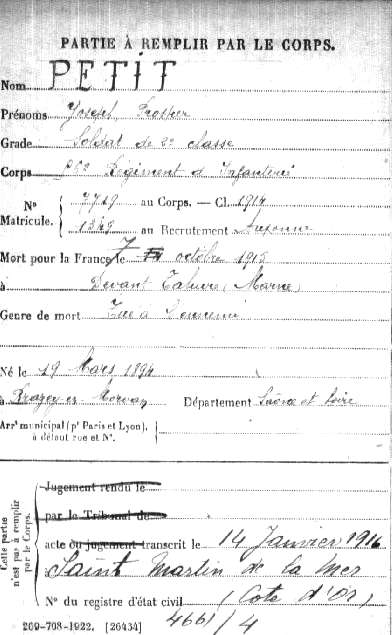 PARTIE À REMPLIR PAR LE CORPS.
Nom PETIT
Prénoms Joseph
Grade Soldat de 2e classe
Corps Régiment d'Infanterie
Nº Matricule. au Corps. — Cl. 1914
au Recrutement Auxonne
Mort pour la France le 7 octobre 1915
à Devant Tahure (Marne)
Genre de mort Tué à l'ennemi
Né le 19 Mars 1894
à Morvan Département Saône et Loire
Arrt municipal (pr Paris et Lyon),
à défaut rue et Nº.
Cette partie
n'est pas à remplir
par le Corps.
Jugement rendu le
par le Tribunal de
acte ou jugement transcrit le 14 Janvier 1916
Saint Martin de la Mer
Nº du registre d'état civil (Cote d'Or)
4661/4
209-708-1922. [26434]